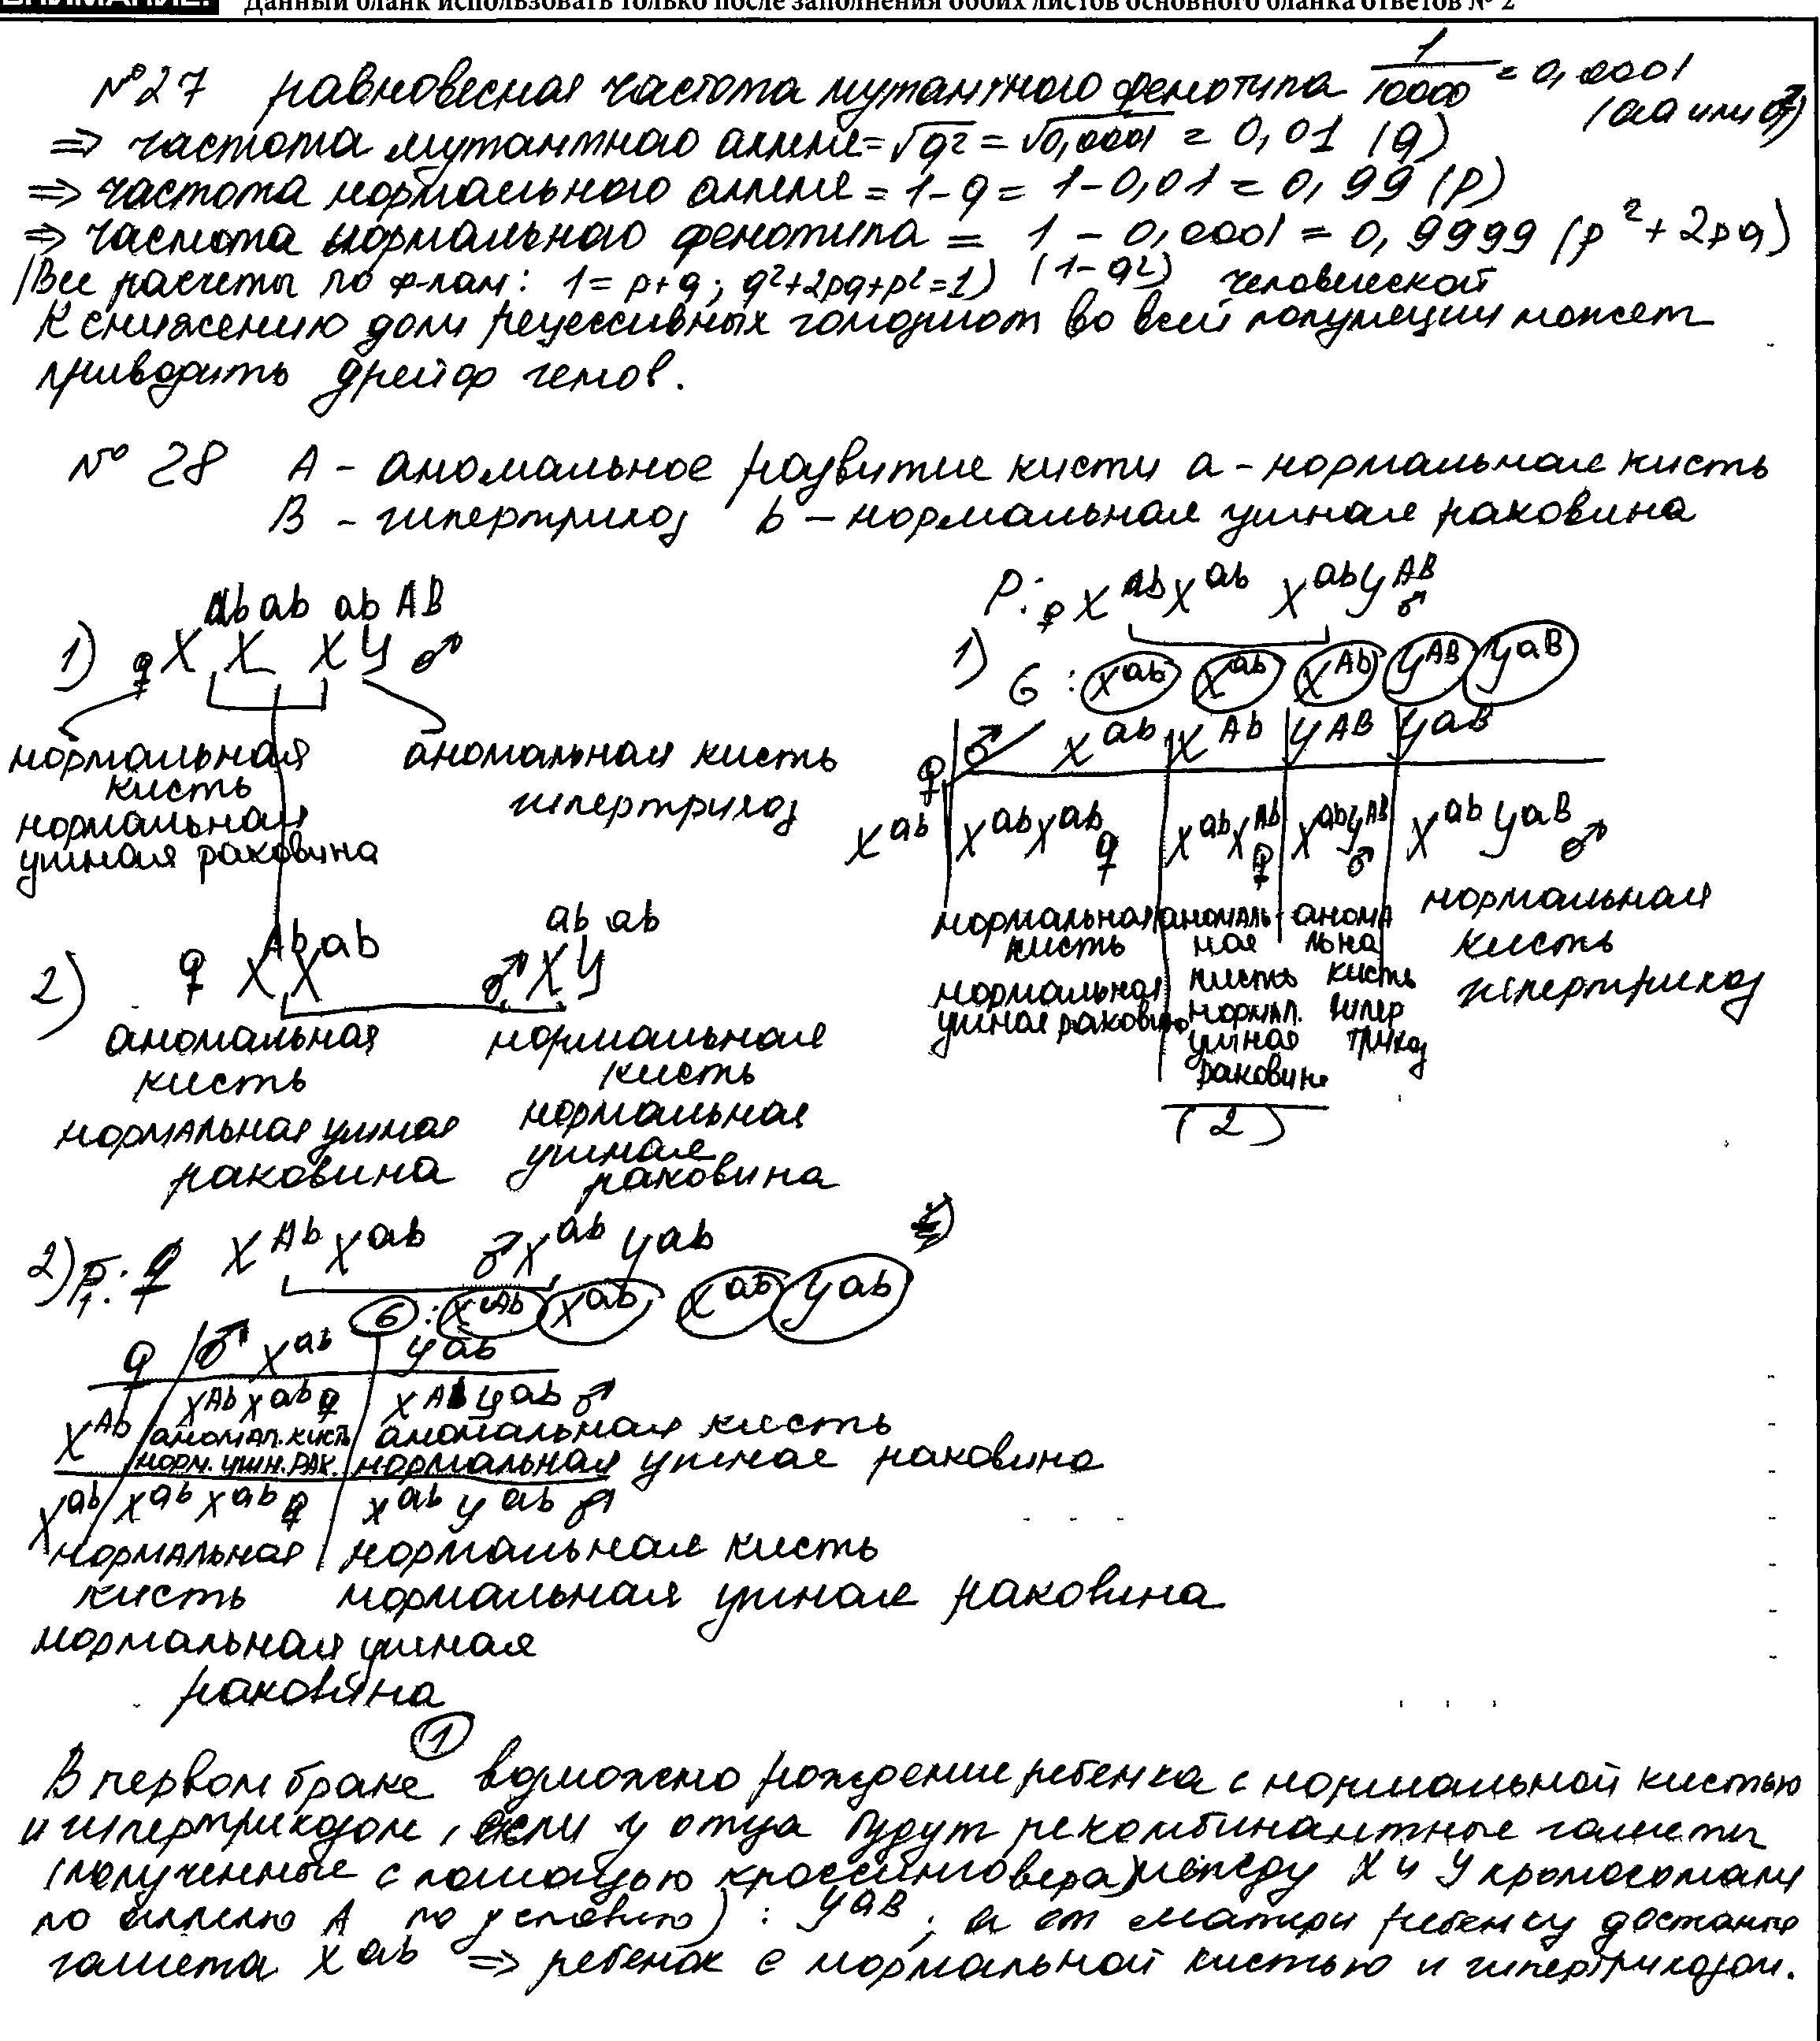 ВНИМАНИЕ! Данный бланк использовать только после заполнения обоих листов основного бланка ответов № 2
№27 равновесная частота мутантного фенотипа 1/10000 = 0,0001
(aa или q²)
⇒ частота мутантного аллеля = √q² = √0,0001 = 0,01 (q)
⇒ частота нормального аллеля = 1-q = 1-0,01 = 0,99 (p)
⇒ частота нормального фенотипа = 1 - 0,0001 = 0,9999 (p²+2pq)
(Все расчеты по ф-лам: 1=p+q; q²+2pq+p²=1) (1-q²) человеческой
К снижению доли рецессивных гомозигот во всей популяции может
приводить дрейф генов.
№ 28 A - аномальное развитие кисти a - нормальная кисть
B - гипертрихоз b - нормальная ушная раковина
1) ♀ X^ab X^ab X^ab Y^AB ♂
нормальная кисть нормальная ушная раковина
аномальная кисть гипертрихоз
2) ♀ X^Ab X^ab ♂ X^ab Y^ab
аномальная кисть нормальная ушная раковина
нормальная кисть нормальная ушная раковина
P: ♀ X^ab X^ab X^ab Y^AB ♂
1) G: X^ab X^ab X^Ab Y^AB Y^aB
♀ ♂ X^ab X^Ab Y^AB Y^aB
X^ab X^ab X^ab ♀ X^ab X^Ab ♀ X^ab Y^AB ♂ X^ab Y^aB ♂
нормальная кисть нормальная ушная раковина
аномальная кисть нормал. ушная раковина
аномальна кисть гипертрихоз
нормальная кисть гипертрихоз
(2)
2) P₁: ♀ X^Ab X^ab ♂ X^ab Y^ab
G: X^Ab X^ab X^ab Y^ab
♀ ♂ X^ab Y^ab
X^Ab X^Ab X^ab ♀ X^Ab Y^ab ♂
аномал. кисть аномальная кисть
норм. ушн. рак. нормальная ушная раковина
X^ab X^ab X^ab ♀ X^ab Y^ab ♂
нормальная нормальная кисть
кисть нормальная ушная раковина
нормальная ушная
раковина
①
В первом браке возможно рождение ребенка с нормальной кистью
и гипертрихозом, если у отца будут рекомбинантные гаметы
(полученные с помощью кроссинговера) между X и Y хромосомами
по аллелю A по условию): Y^aB, а от матери ребенку достанется
гамета X^ab ⇒ ребенок с нормальной кистью и гипертрихозом.